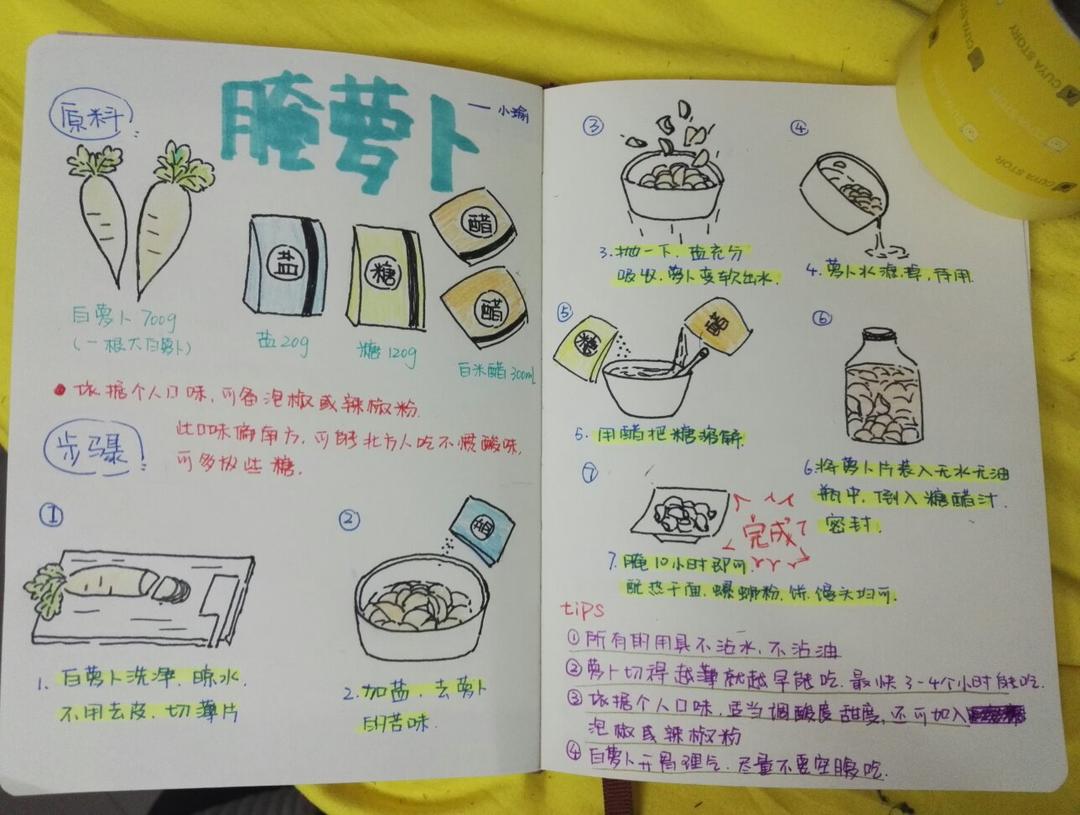 腌萝卜
— 小瑜
原料
盐
糖
醋
醋
白萝卜 700g
(一根大白萝卜)
盐 20g
糖 120g
白米醋 300mL
依据个人口味,可备泡椒或辣椒粉.
此口味偏南方,可能北方人吃不惯酸味,
可多放些糖.
步骤
①
1. 白萝卜洗净、晾水.
不用去皮、切薄片
②
盐
2. 加盐、去萝卜
的苦味.
③
3. 抛一下、盐充分
吸收.萝卜变软出水.
④
4. 萝卜水滗掉,待用.
⑤
糖
醋
5. 用醋把糖溶解.
⑥
6. 将萝卜片装入无水无油
瓶中、倒入糖醋汁.
密封.
⑦
完成
7. 腌10小时即可
配热干面、螺蛳粉、饼、馒头均可.
tips
①所有用具不沾水、不沾油
②萝卜切得越薄就越早能吃.最快3-4个小时能吃.
③依据个人口味,适当调酸度甜度,还可加入
泡椒或辣椒粉
④白萝卜开胃理气.尽量不要空腹吃.
CUYA STORY
CUYA STOR
CUYA STOR